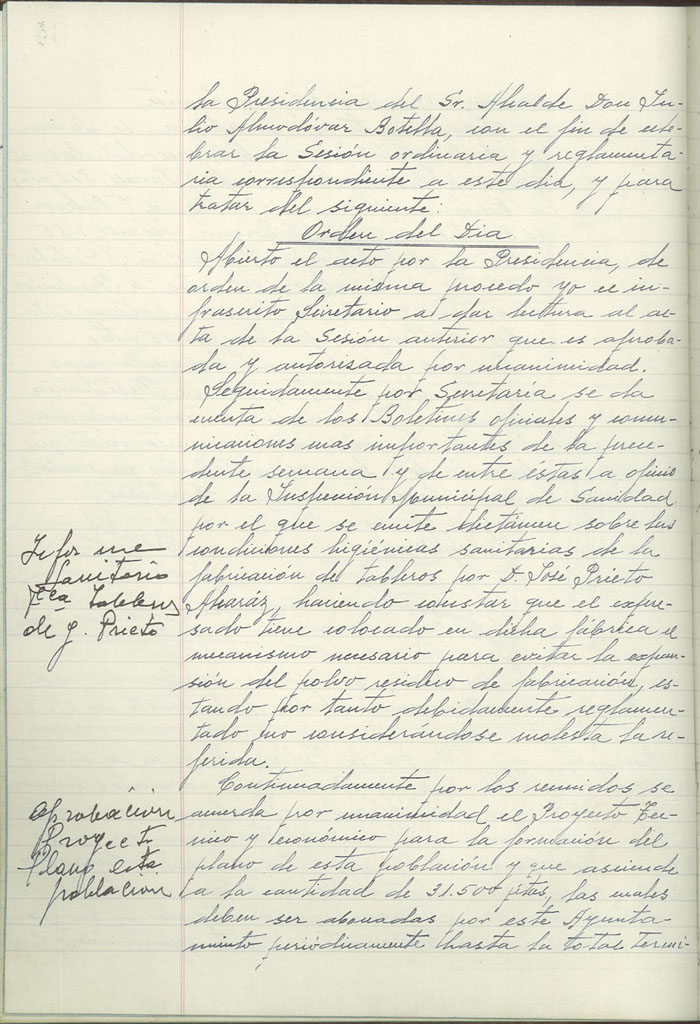 la Presidencia del Sr. Alcalde Don Ju-
lio Almodóvar Botella, con el fin de cele-
brar la Sesión ordinaria y reglamenta-
ria correspondiente a este dia, y para
tratar del siguiente:
Orden del Dia
Abierto el acto por la Presidencia, de
orden de la misma procedo yo el in-
frascrito Secretario a dar lectura al ac-
ta de la Sesión anterior que es aproba-
da y autorisada por unanimidad.
Seguidamente por Secretaría se da
cuenta de los Boletines oficiales y comu-
nicaciones mas importantes de la prece-
dente semana y de entre éstas a oficio
de la Inspección Municipal de Sanidad
por el que se emite dictámen sobre las
condiciones higiénicas sanitarias de la
fabricación de tableros por D. José Prieto
Alcaráz, haciendo constar que el expre-
sado tiene colocado en dicha fábrica el
mecanismo necesario para evitar la expan-
sión del polvo residuo de fabricación, es-
tando por tanto debidamente reglamen-
tado no considerandose molesta la re-
ferida.
Informe
Sanitario
Fca Tableros
de J. Prieto
Continuadamente por los reunidos se
acuerda por unanimidad el Proyecto Tec-
nico y económico para la formación del
plano de esta población y que asciende
a la cantidad de 31.500 ptas, las cuales
deben ser abonadas por este Ayunta-
miento periódicamente hasta la total termi-
aprobación
Proyecto
plano esta
población